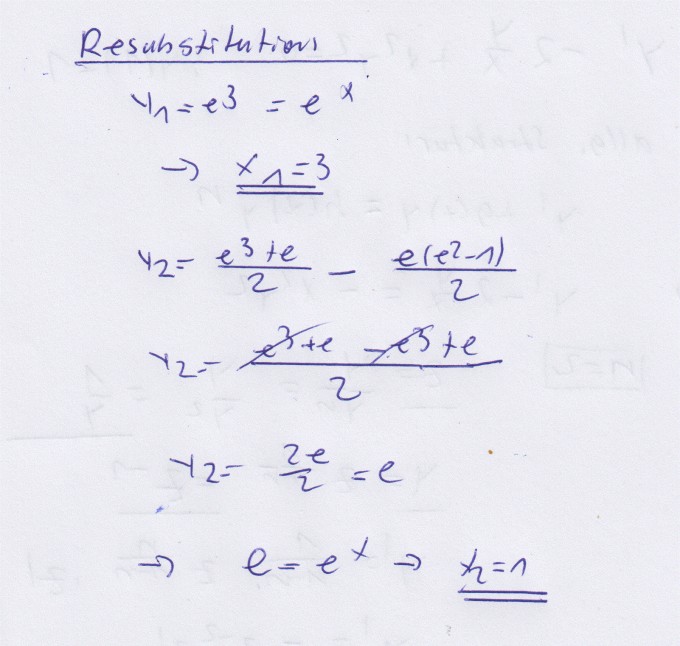 Resubstitution
y₁ = e³ = eˣ
→ x₁ = 3
y₂ = (e³+e)/2 − e(e²−1)/2
y₂ = (e³+e −e³+e)/2
y₂ = 2e/2 = e
→ e = eˣ → x₂ = 1